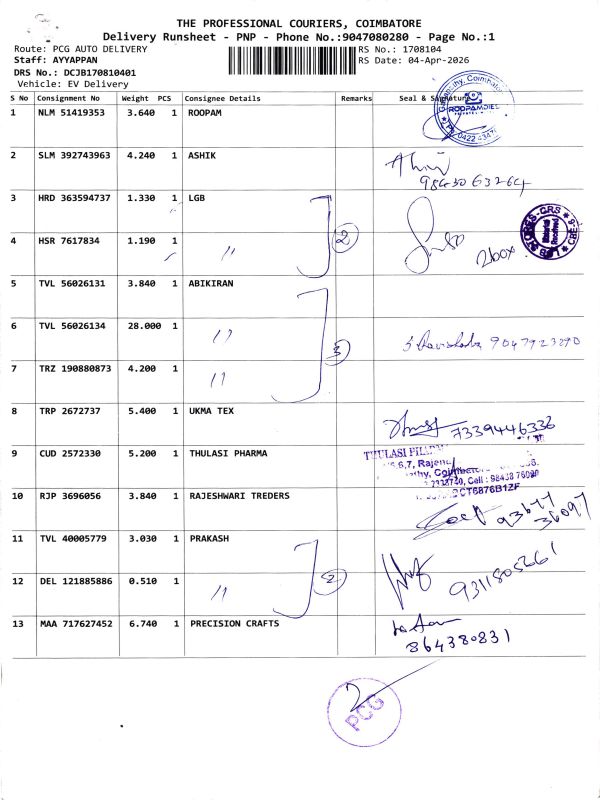 THE PROFESSIONAL COURIERS, COIMBATORE
Delivery Runsheet - PNP - Phone No.:9047080280 - Page No.:1
Route: PCG AUTO DELIVERY RS No.: 1708104
Staff: AYYAPPAN RS Date: 04-Apr-2026
DRS No.: DCJB170810401
Vehicle: EV Delivery
S No Consignment No Weight PCS Consignee Details Remarks Seal & Signature
1 NLM 51419353 3.640 1 ROOPAM
2 SLM 392743963 4.240 1 ASHIK
9843063264
3 HRD 363594737 1.330 1 LGB
2
4 HSR 7617834 1.190 1 " 2 box
5 TVL 56026131 3.840 1 ABIKIRAN
6 TVL 56026134 28.000 1 " 9047923290
3
7 TRZ 190880873 4.200 1 "
8 TRP 2672737 5.400 1 UKMA TEX 7339446336
9 CUD 2572330 5.200 1 THULASI PHARMA
THULASI
Cell : 98438 76090
10 RJP 3696056 3.840 1 RAJESHWARI TREDERS
93677
36097
11 TVL 40005779 3.030 1 PRAKASH
2
12 DEL 121885886 0.510 1 "
13 MAA 717627452 6.740 1 PRECISION CRAFTS
864380831
PCG